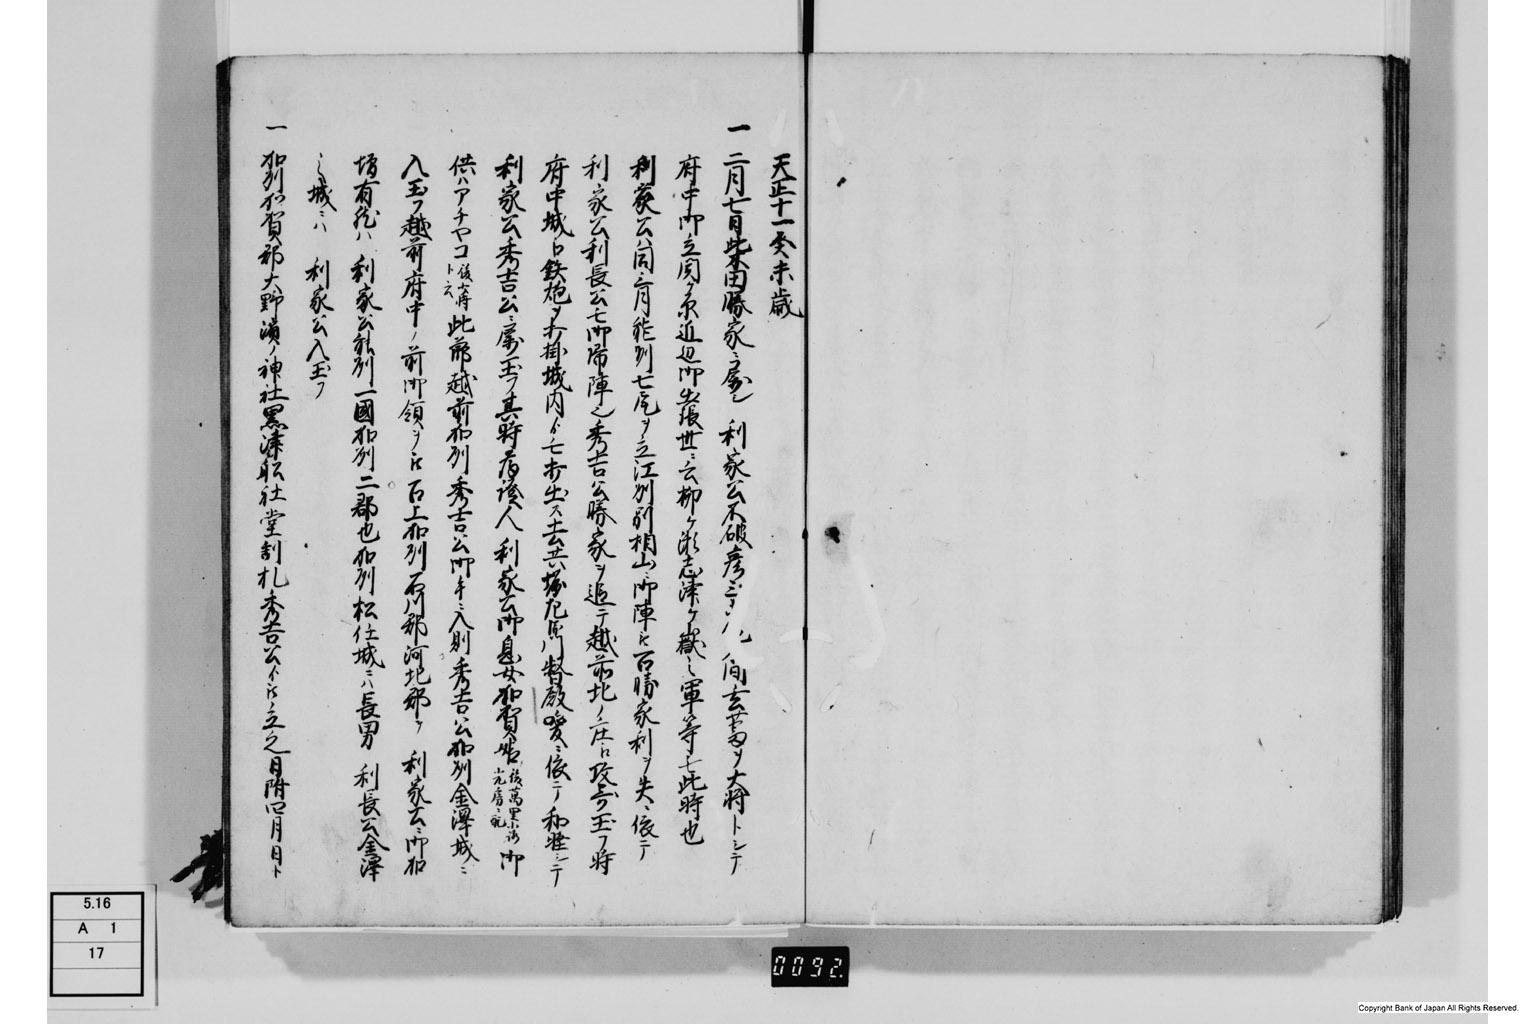 天正十一癸未歳
一 二月七日柴田勝家ニ屬シ 利家公不破彦三 玄蕃ヲ大将トシテ
府中御立関ヶ原近辺御出張世ニ云柳ヶ瀬志津ヶ嶽之軍等モ此時也
利家公ハ同三月能州七尾ヲ立江州別相山ニ御陣 勝家利ヲ失ニ依テ
利家公利長公モ御帰陣也秀吉公勝家ヲ追テ越前北ノ庄 攻 玉フ時
府中城 鉄炮ヲ打掛城内 モ打出ス 堀 督殿噯ニ依テ和 シテ
利家公秀吉公ニ屬玉フ其時 證人 利家公御息女加賀 後萬里小路 光房ニ 御
供ハアチヤコ 後 ト云 此節越前加州秀吉公御手ニ入則秀吉公加州金澤城ニ
入玉フ越前府中ノ前御領ヲ 上加州石川郡河北郡ヲ 利家公ニ御加
増有 ハ 利家公能州一國加州二郡也加州松任城ニハ長男 利長公金澤
之城ニハ 利家公入玉フ
一 加州加賀郡大野濱ノ神社黒津舩社堂制札秀吉公 立之月附四月日ト
5.16
A 1
17
0092.
Copyright Bank of Japan All Rights Reserved.